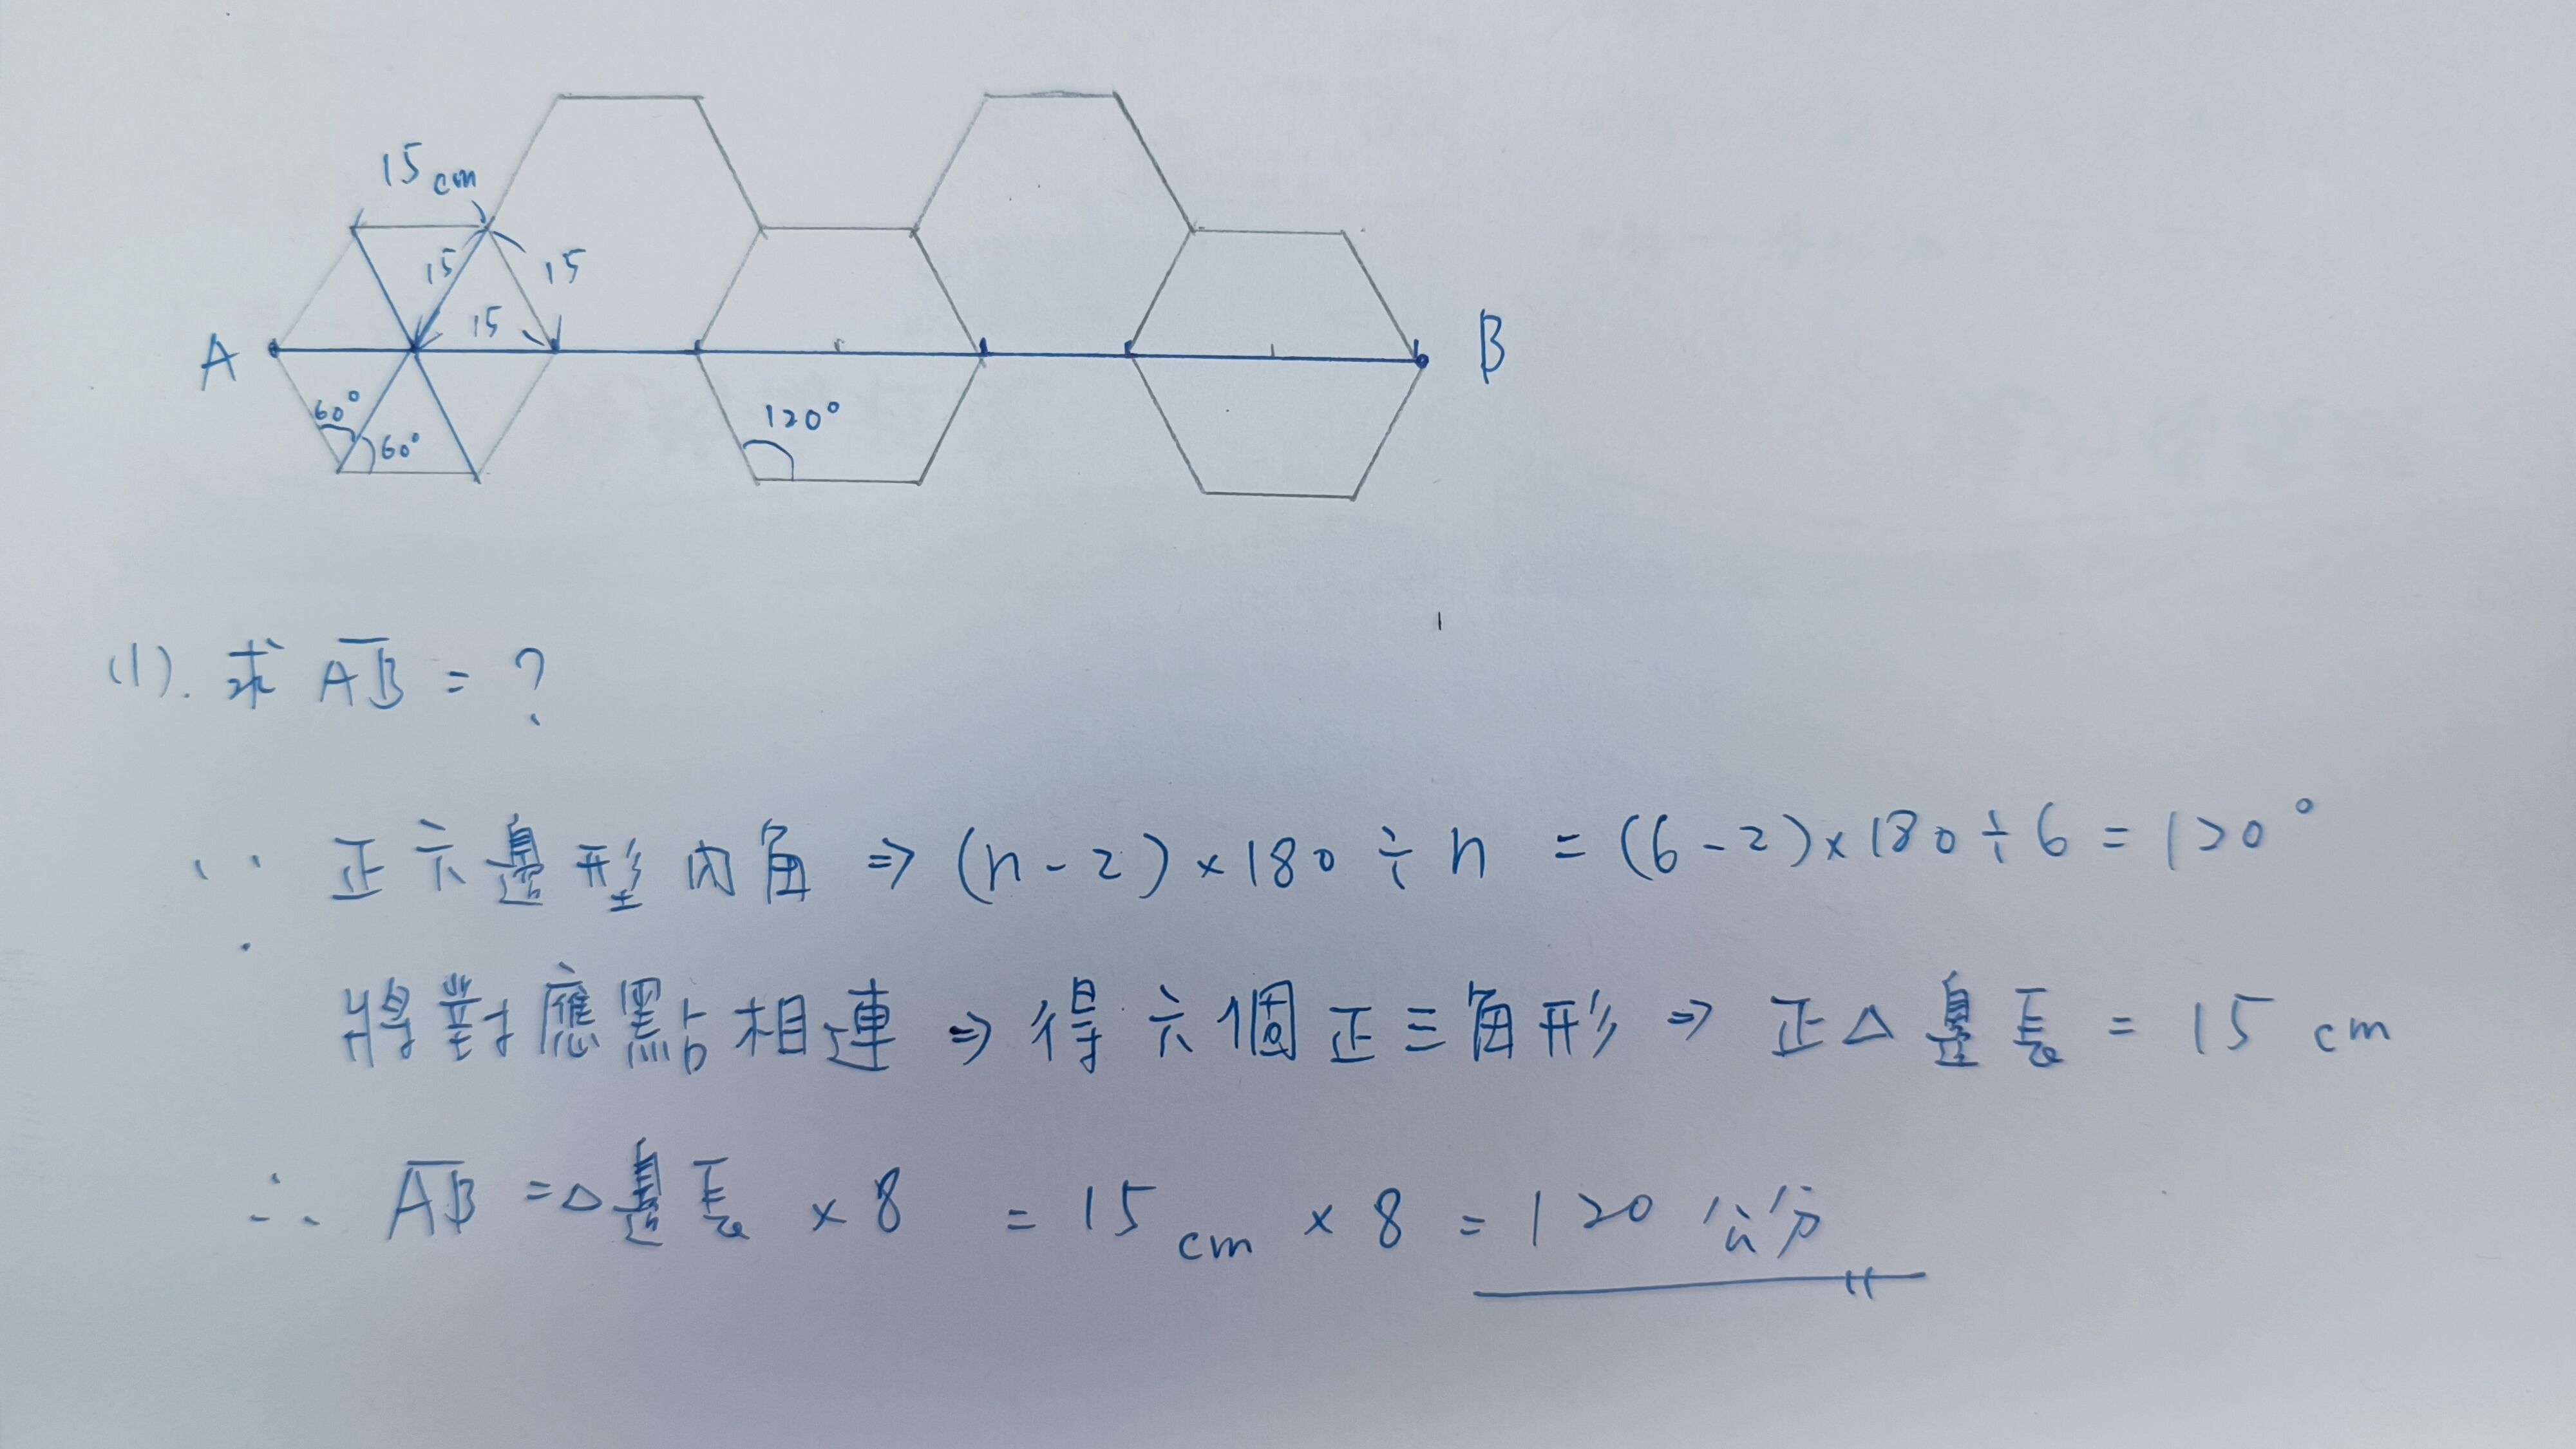 15 cm
15
15
15
A
B
60°
60°
120°
(1). 求 A̅B̅ = ?
∵ 正六邊形內角 ⇒ (n-2)×180÷n = (6-2)×180÷6 = 120°
將對應點相連 ⇒ 得六個正三角形 ⇒ 正△邊長 = 15 cm
∴ A̅B̅ = △邊長 × 8 = 15 cm × 8 = 120 公分